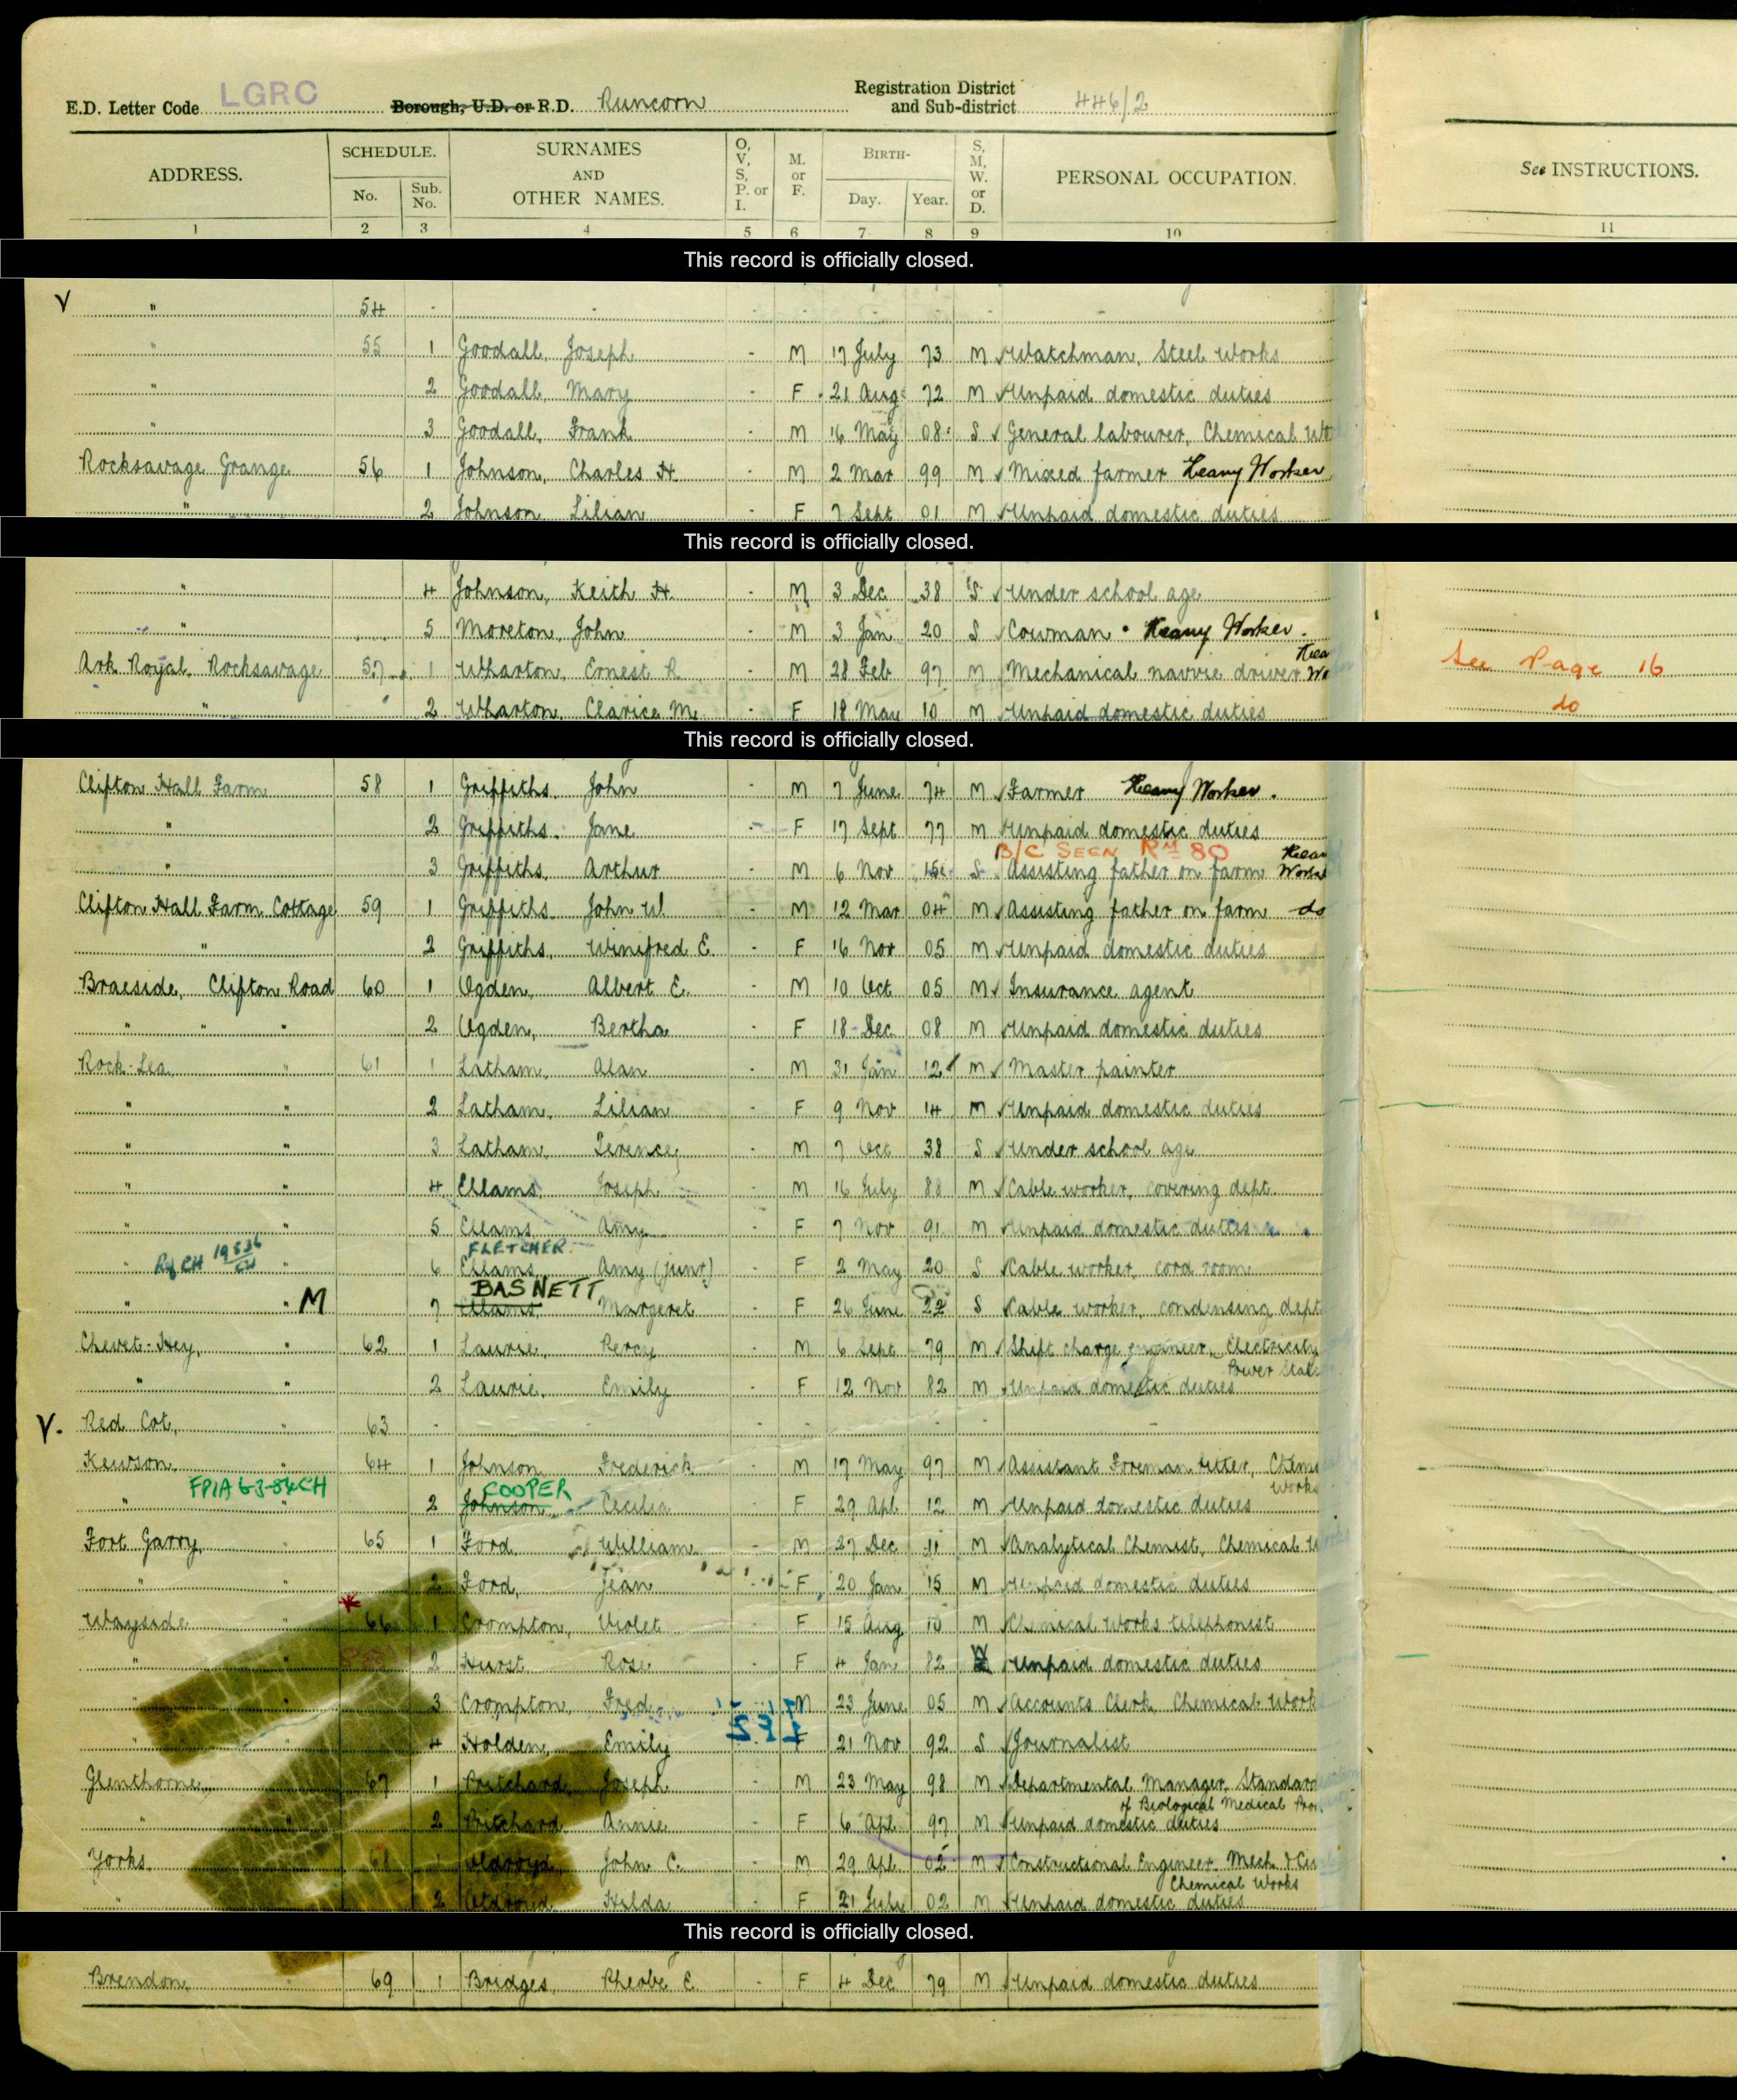 E.D. Letter Code LGRC Borough, U.D. or R.D. Runcorn Registration District and Sub-district 446/2
ADDRESS. SCHEDULE. No. Sub. No. SURNAMES AND OTHER NAMES. O, V, S, P. or I. M. or F. BIRTH- Day. Year. S, M, W. or D. PERSONAL OCCUPATION. See INSTRUCTIONS.
1 2 3 4 5 6 7 8 9 10 11
This record is officially closed.
V " 54 - - - - - - - -
" 55 1 Goodall, Joseph - M 17 July 73 M Watchman, Steel Works
" 2 Goodall, Mary - F 21 Aug 72 M Unpaid domestic duties
" 3 Goodall, Frank - M 16 May 08 S General labourer, Chemical
Rocksavage Grange 56 1 Johnson, Charles H. - M 2 Mar 99 M Mixed farmer Heavy Worker
" 2 Johnson Lilian F 7 Sept 01 M Unpaid domestic duties
This record is officially closed.
" 4 Johnson, Keith H. - M 3 Dec 38 S Under school age
" 5 Moreton, John - M 3 Jan 20 S Cowman Heavy Worker.
Ark Royal, Rocksavage 57 1 Wharton, Ernest R - M 28 Feb 97 M Mechanical navvie driver See Page 16
" 2 Wharton, Clarice M. - F 18 May 10 M Unpaid domestic duties do
This record is officially closed.
Clifton Hall Farm 58 1 Griffiths, John - M 7 June 74 M Farmer Heavy Worker.
" 2 Griffiths, Jane - F 17 Sept 77 M Unpaid domestic duties
B/C SEEN RM 80
" 3 Griffiths, Arthur - M 6 Nov 15 S Assisting father on farm
Clifton Hall Farm Cottage 59 1 Griffiths John W. - M 12 Mar 04 M Assisting father on farm do
" 2 Griffiths, Winifred E. - F 16 Nov 05 M Unpaid domestic duties
Braeside, Clifton Road 60 1 Ogden, Albert E. - M 10 Oct 05 M Insurance agent
" " " 2 Ogden, Bertha - F 18 Dec 08 M Unpaid domestic duties
Rock-Lea " 61 1 Latham, Alan - M 31 Jan 12 M Master painter
" " 2 Latham, Lilian - F 9 Nov 14 M Unpaid domestic duties
" " 3 Latham, Terence, - M 7 Oct 38 S Under school age
" " 4 Ellams, Joseph - M 16 July 88 M Cable worker, covering dept.
" " 5 Ellams Amy - F 7 Nov 91 M Unpaid domestic duties
FLETCHER
" " 6 Ellams, Amy (junr) - F 2 May 20 S Cable worker, cord room
BASNETT
" " M 7 Ellams, Margeret - F 26 June 22 S Cable worker, condensing dept
Chevet-Hey, " 62 1 Laurie, Percy - M 6 Sept 79 M Shift charge engineer, Electricity
Power
" " 2 Laurie, Emily - F 12 Nov 82 M Unpaid domestic duties
V. Red Cot, " 63 - - - - - - - -
Kewson, " 64 1 Johnson Frederick - M 17 May 97 M Assistant Foreman fitter,
FPIA 6-3-84 CH COOPER Works
" 2 Johnson, Cecilia - F 29 Apl 12 M Unpaid domestic duties
Fort Garry, " 65 1 Ford William - M 27 Dec 11 M Analytical Chemist, Chemical
" " 2 Ford, Jean - F 20 Jan 15 M Unpaid domestic duties
Wayside " 66 1 Crompton, Violet - F 15 Aug 10 M Chemical Works telephonist
" " 2 Hurst Rose - F 4 Jan 82 W Unpaid domestic duties
" " 3 Crompton, Fred M 23 June 05 M Accounts Clerk, Chemical Work
" " 4 Holden, Emily F 21 Nov 92 S Journalist
Glenthorne, " 67 1 Pritchard, Joseph - M 23 May 98 M Departmental Manager,
of Biological Medical
" " 2 Pritchard Annie - F 6 Apl 97 M Unpaid domestic duties
Yorks, 1 Oldroyd, John C. - M 29 Apl 02 M Constructional Engineer Mech.
Chemical Works
" 2 Oldroyd Hilda - F 21 July 02 M Unpaid domestic duties
This record is officially closed.
Brendon, 69 1 Bridges, Pheobe E - F 4 Dec 79 M Unpaid domestic duties